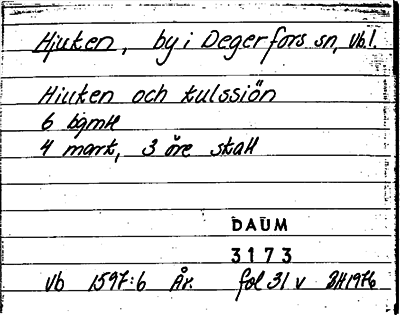 Hjuken, by i Degerfors sn, Vb.l.
Hiuken och kulssiön
6 bqmH
4 mark, 3 öre skatt
DAUM
3173
Vb 1597:6 År. fol 31 v BH1976